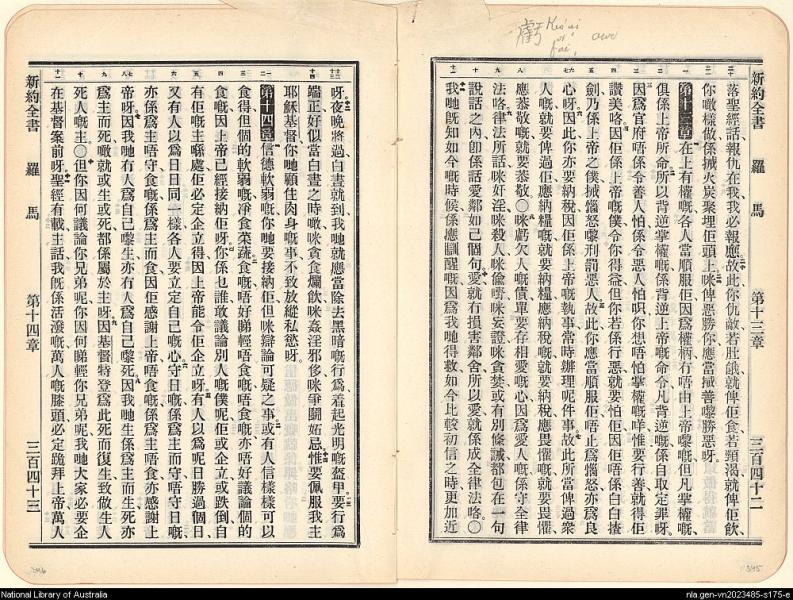 虧 Kw'ai
or
fai,
owe
新約全書
羅馬
第十三章
三百四十二
落聖經話報仇在我我必報應故此你仇敵若肚餓就俾佢食若頸渴就俾佢飲
你噉樣做係搣火炭聚埋佢頭上咪俾惡勝你應當搣善嚟勝惡呀
第十三章在上有權嘅各人當順服佢因爲權柄冇唔由上帝嚟嘅但凡掌權嘅
俱係上帝所命所以背逆掌權嘅係背逆上帝嘅命令凡背逆嘅係自取定罪呀
因爲官府唔係令善人怕係令惡人怕呮你想唔怕掌權嘅咩惟要行善就得佢
讚美咯因佢係上帝嘅僕令你得益但你若係行惡就要怕佢因佢唔係白白揸
劍乃係上帝之僕搣惱怒嚟刑罰惡人故此你應當順服佢唔止爲惱怒亦爲良
心呀因此你亦要納稅因佢係上帝嘅執事常時辦理呢件事故此所當俾過衆
人嘅就要俾過佢應納糧嘅就要納糧應納稅嘅就要納稅應畏懼嘅就要畏懼
應恭敬嘅就要恭敬〇咪虧欠人嘅債單要存相愛嘅心因爲愛人嘅係守全律
法咯律法所話咪奸淫咪殺人咪偷嘢咪妄證咪貪婪或有別條誡都包在一句
說話之內卽係話愛鄰如己個句愛就冇損害鄰舍所以愛就係成全律法咯〇
我哋旣知如今嘅時候係應瞓醒嘅因爲我哋得救如今比較初信之時更加近
呀夜晚將過白晝就到我哋就應當除去黑暗嘅行爲着起光明嘅盔甲要行爲
端正好似當白晝之時噉咪貪食爛飲咪姦淫邪侈咪爭鬭妬忌惟要佩服我主
耶穌基督你哋顧住肉身嘅事不致放縱私慾呀
第十四章信德軟弱嘅你哋要接納佢但咪辯論可疑之事或有人信樣樣可以
食得但個的軟弱嘅凈食菜蔬食嘅唔好睇輕唔食嘅唔食嘅亦唔好議論個的
食嘅因上帝已經接納佢呀你係乜誰敢議論別人嘅僕呢佢或企立或跌倒自
有佢嘅主喺處佢必定企立得因上帝能令佢企立呀有人以爲呢日勝過個日
又有人以爲日日同一樣各人要立定自己嘅心守日嘅係爲主而守唔守日嘅
亦係爲主唔守食嘅係爲主而食因佢感謝上帝唔食嘅係爲主唔食亦感謝上
帝呀因我哋冇人爲自己嚟生亦冇人爲自己嚟死因我哋生係爲主而生死亦
爲主而死噉就或生或死都係屬於主呀因基督特登爲此死而復生致做生人
死人嘅主〇但你因何議論你兄弟呢你因何睇輕你兄弟呢我哋大家必要企
在基督案前呀聖經有載主話我旣係活潑嘅萬人嘅膝頭必定跪拜上帝萬人
新約全書
羅馬
第十四章
三百四十三
National Library of Australia
nla.gen-vn2023485-s175-e